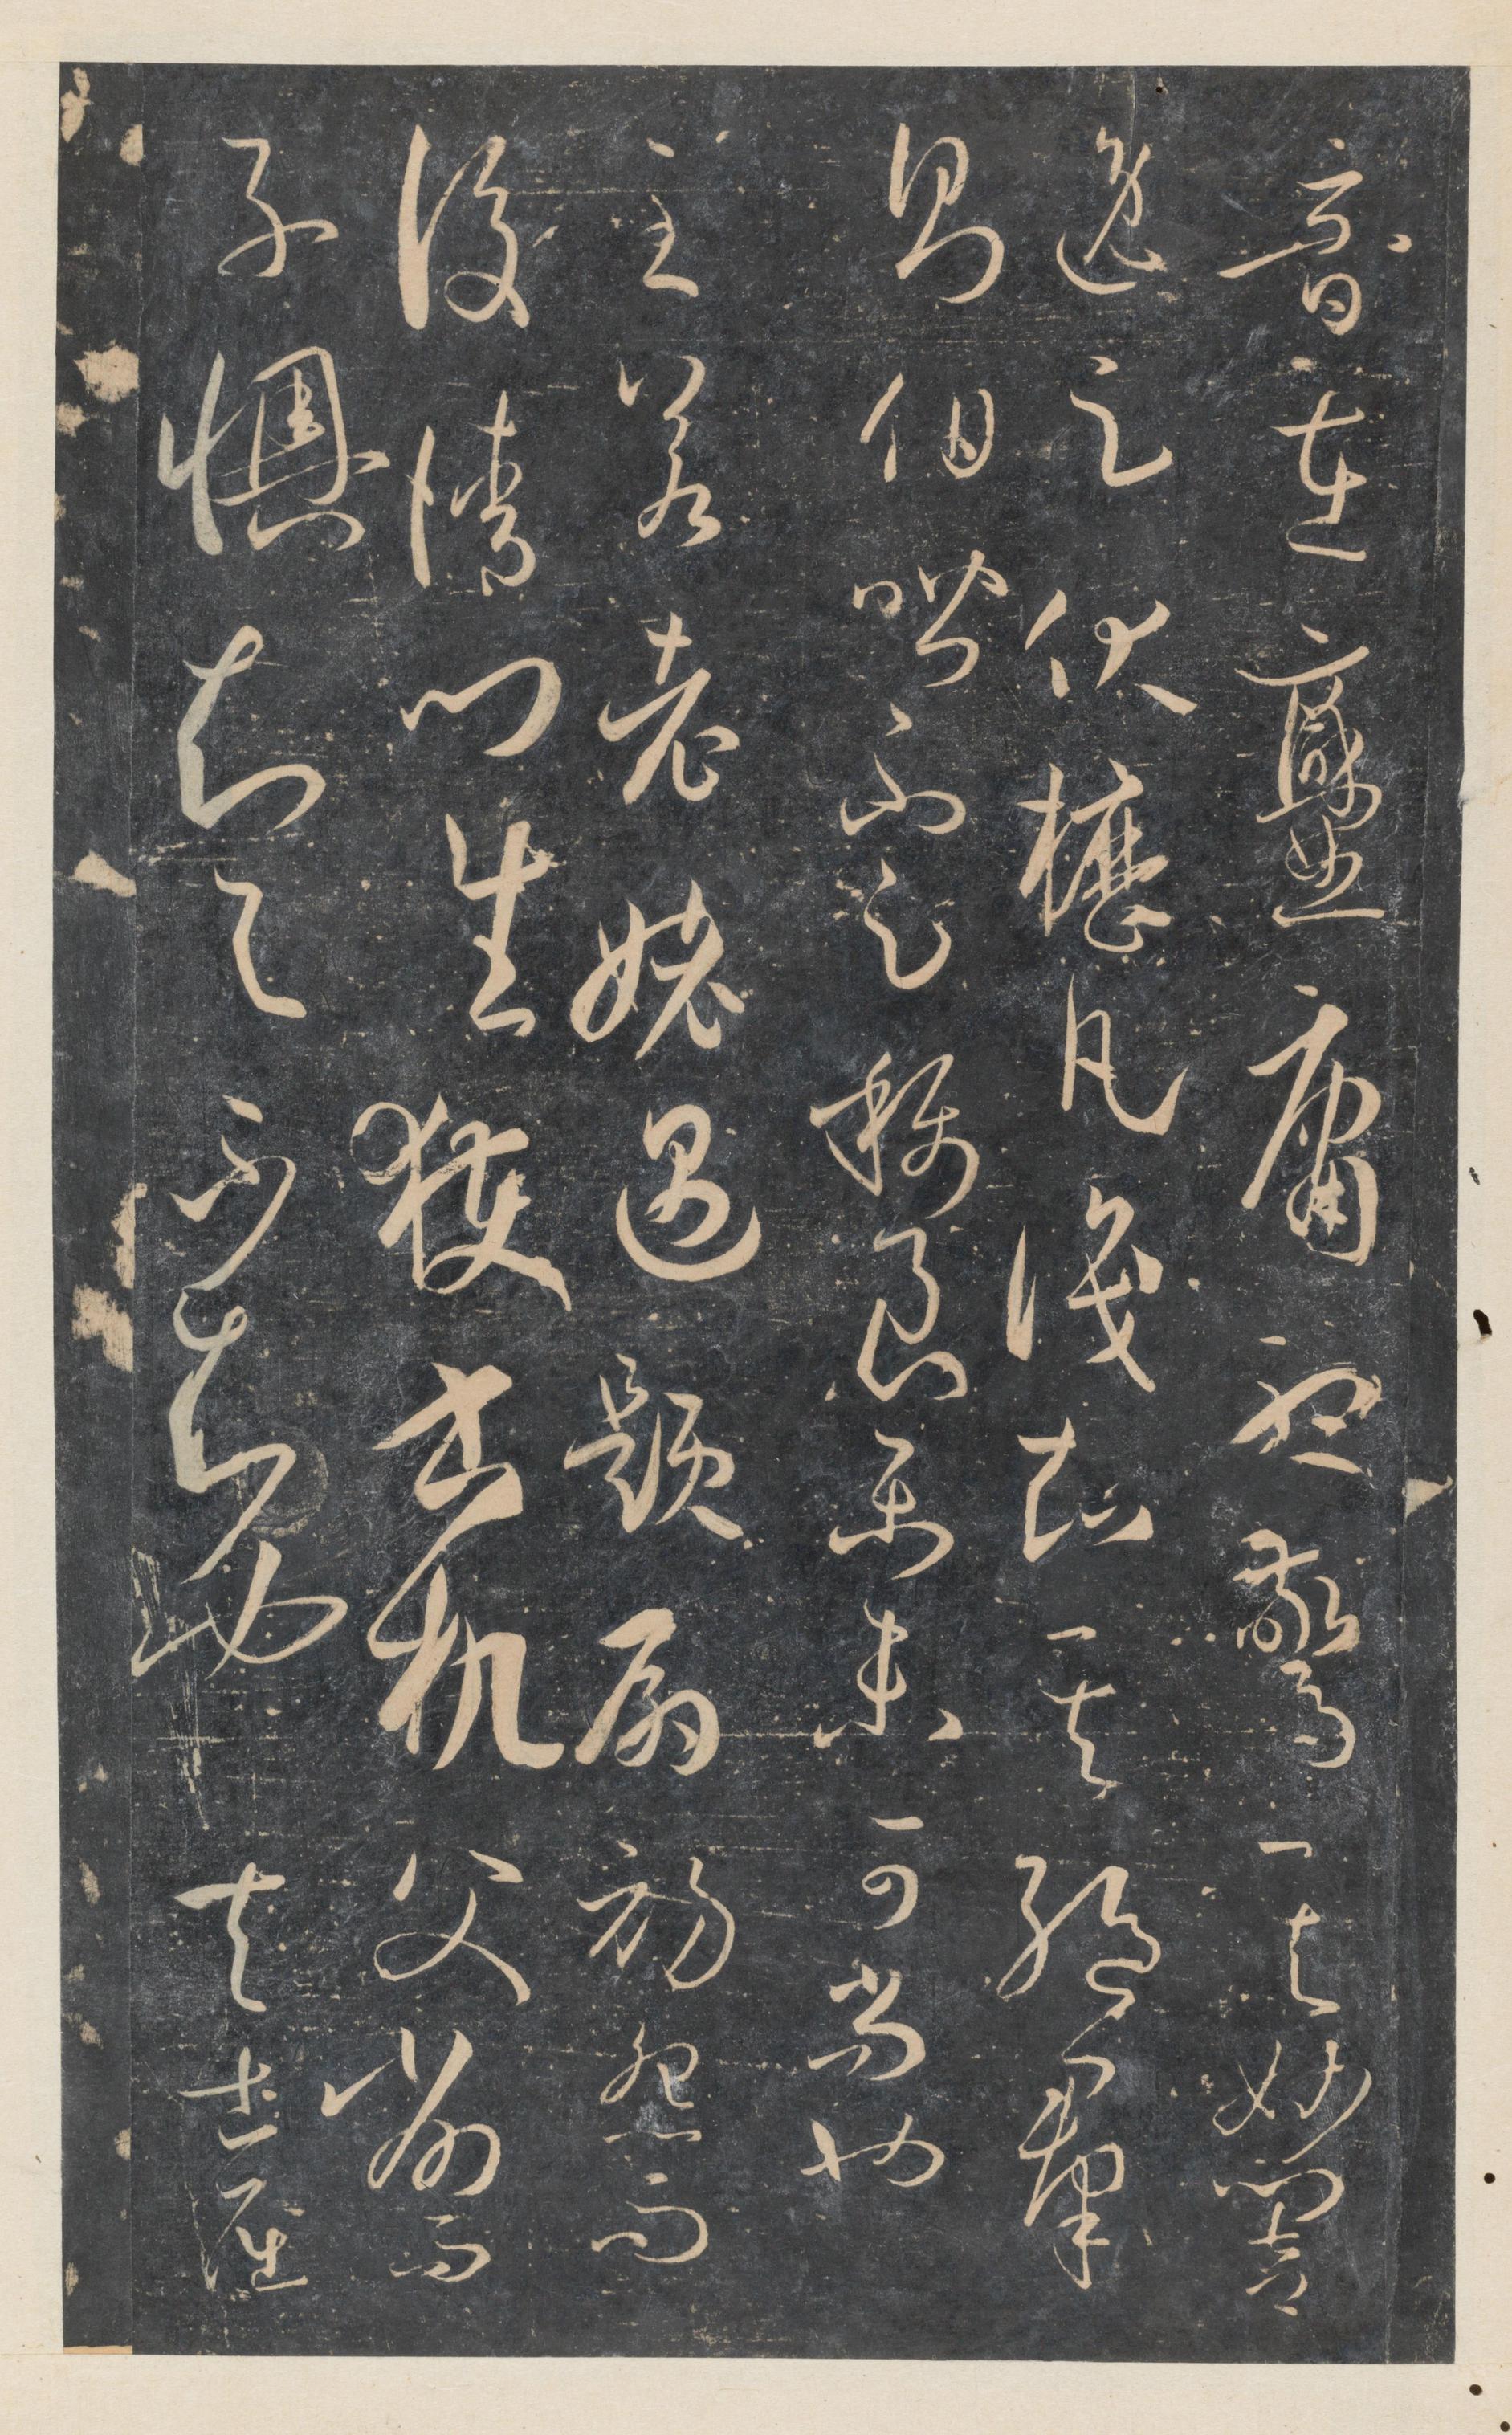 音在爨庸聽驚其妙響
逸足伏櫪凡識知其絕群
則伯喈不足稱良樂未可尚也
至若老姥遇題扇初怨而
後請門生獲書机父削而
子懊知與不知也夫士屈